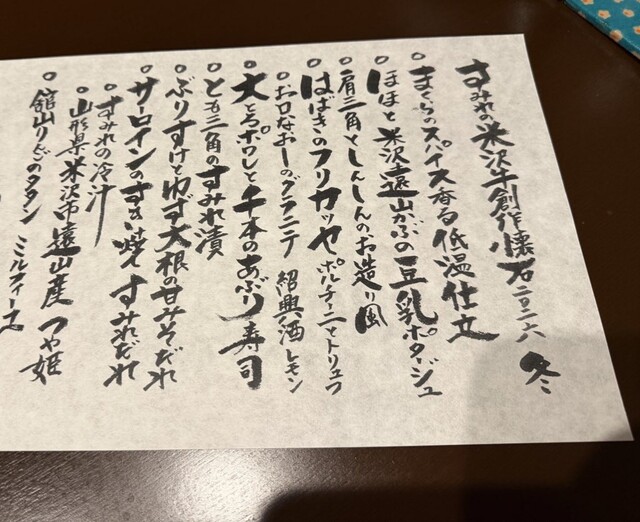 すみれの米沢牛創作懐石二〇二六 冬
○まくらのスパイス香る低温仕立
○ほほと米沢遠山かぶの豆乳ポタージュ
○肩三角としんしんのお造り風
○はばきのフリカッセ ポルチーニとトリュフ
○お口なおしのグラニテ 紹興酒レモン
○大とろポワレと千本のあぶり寿司
○とも三角のすみれ漬
○ぶりすけとゆず大根の甘みそだれ
○サーロインのすき焼 すみれだれ
○すみれの冷汁
○山形県米沢市遠山産 つや姫
○舘山りんごのタタン ミルフィーユ